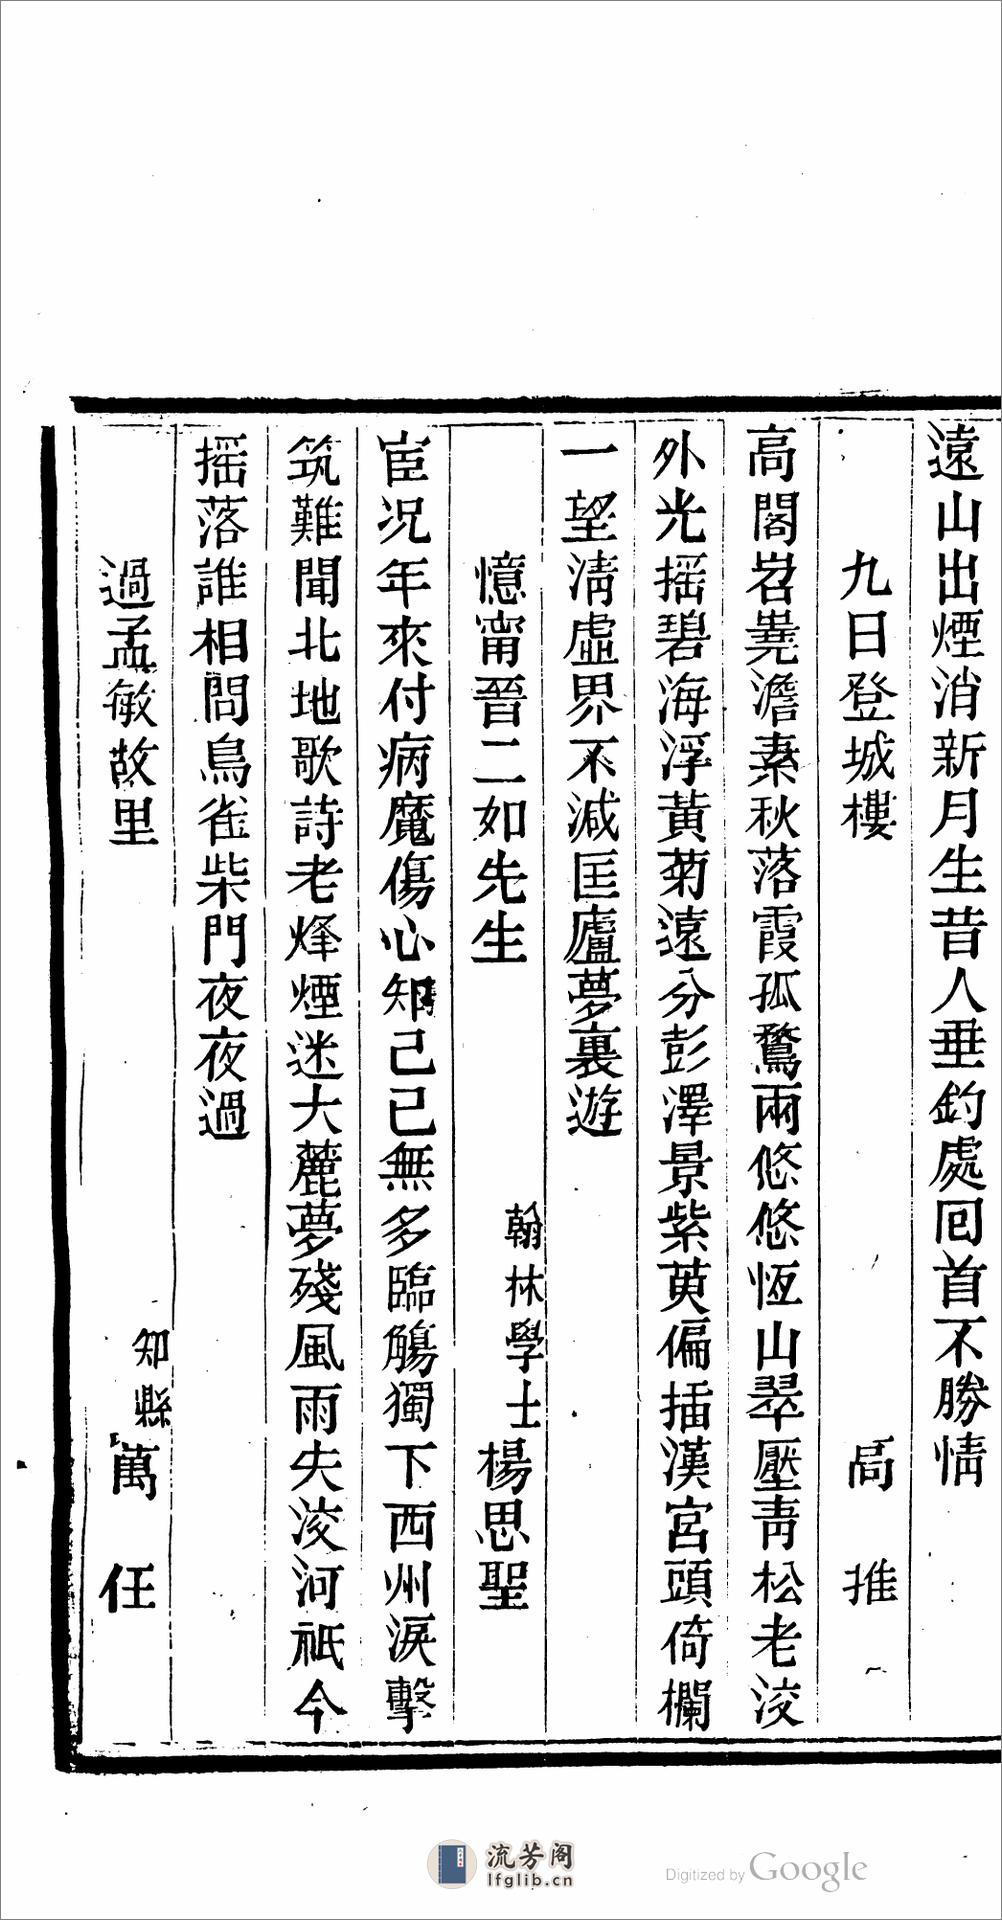 遠山出煙消新月生昔人垂釣處囘首不勝情
九日登城樓 局推
高閣岧嶤澹素秋落霞孤鶩兩悠悠恆山翠壓青松老洨
外光摇碧海浮黃菊遠分彭澤景紫萸偏插漢宮頭倚欄
一望淸虛界不減匡廬夢裏遊
憶甯晉二如先生 翰林學士楊思聖
宦況年來付病魔傷心知己已無多臨觴獨下西州淚擊
筑難聞北地歌詩老烽煙迷大麓夢殘風雨失洨河祇今
摇落誰相問鳥雀柴門夜夜過
過孟敏故里 知縣萬任
流芳阁
lfglib.cn
Digitized by Google